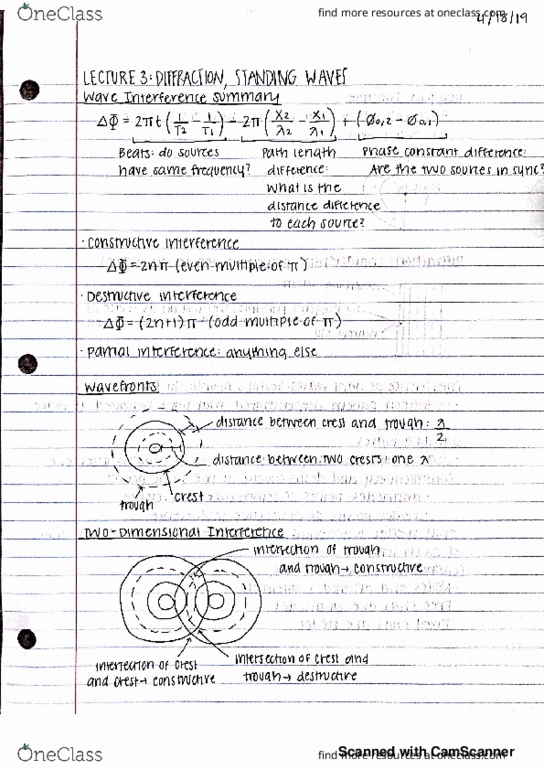 OneClass
find more resources at oneclass.com
4/18/19
LECTURE 3: DIFFRACTION, STANDING WAVES
Wave Interference Summary
ΔΦ = 2πt (1/T2 - 1/T1) - 2π (X2/λ2 - X1/λ1) + (Ø0,2 - Ø0,1)
Beats: do sources have same frequency?
Path length difference: What is the distance difference to each source?
Phase constant difference: Are the two sources in sync?
· Constructive interference
ΔΦ = 2nπ (even multiple of π)
· Destructive interference
ΔΦ = (2n+1)π (odd multiple of π)
· Partial interference: anything else
Wavefronts
distance between crest and trough: λ/2
distance between two crests: one λ
crest
trough
Two-Dimensional Interference
intersection of trough
and trough → constructive
intersection of crest
and crest → constructive
intersection of crest and
trough → destructive
Scanned with CamScanner
OneClass
find more resources at oneclass.com